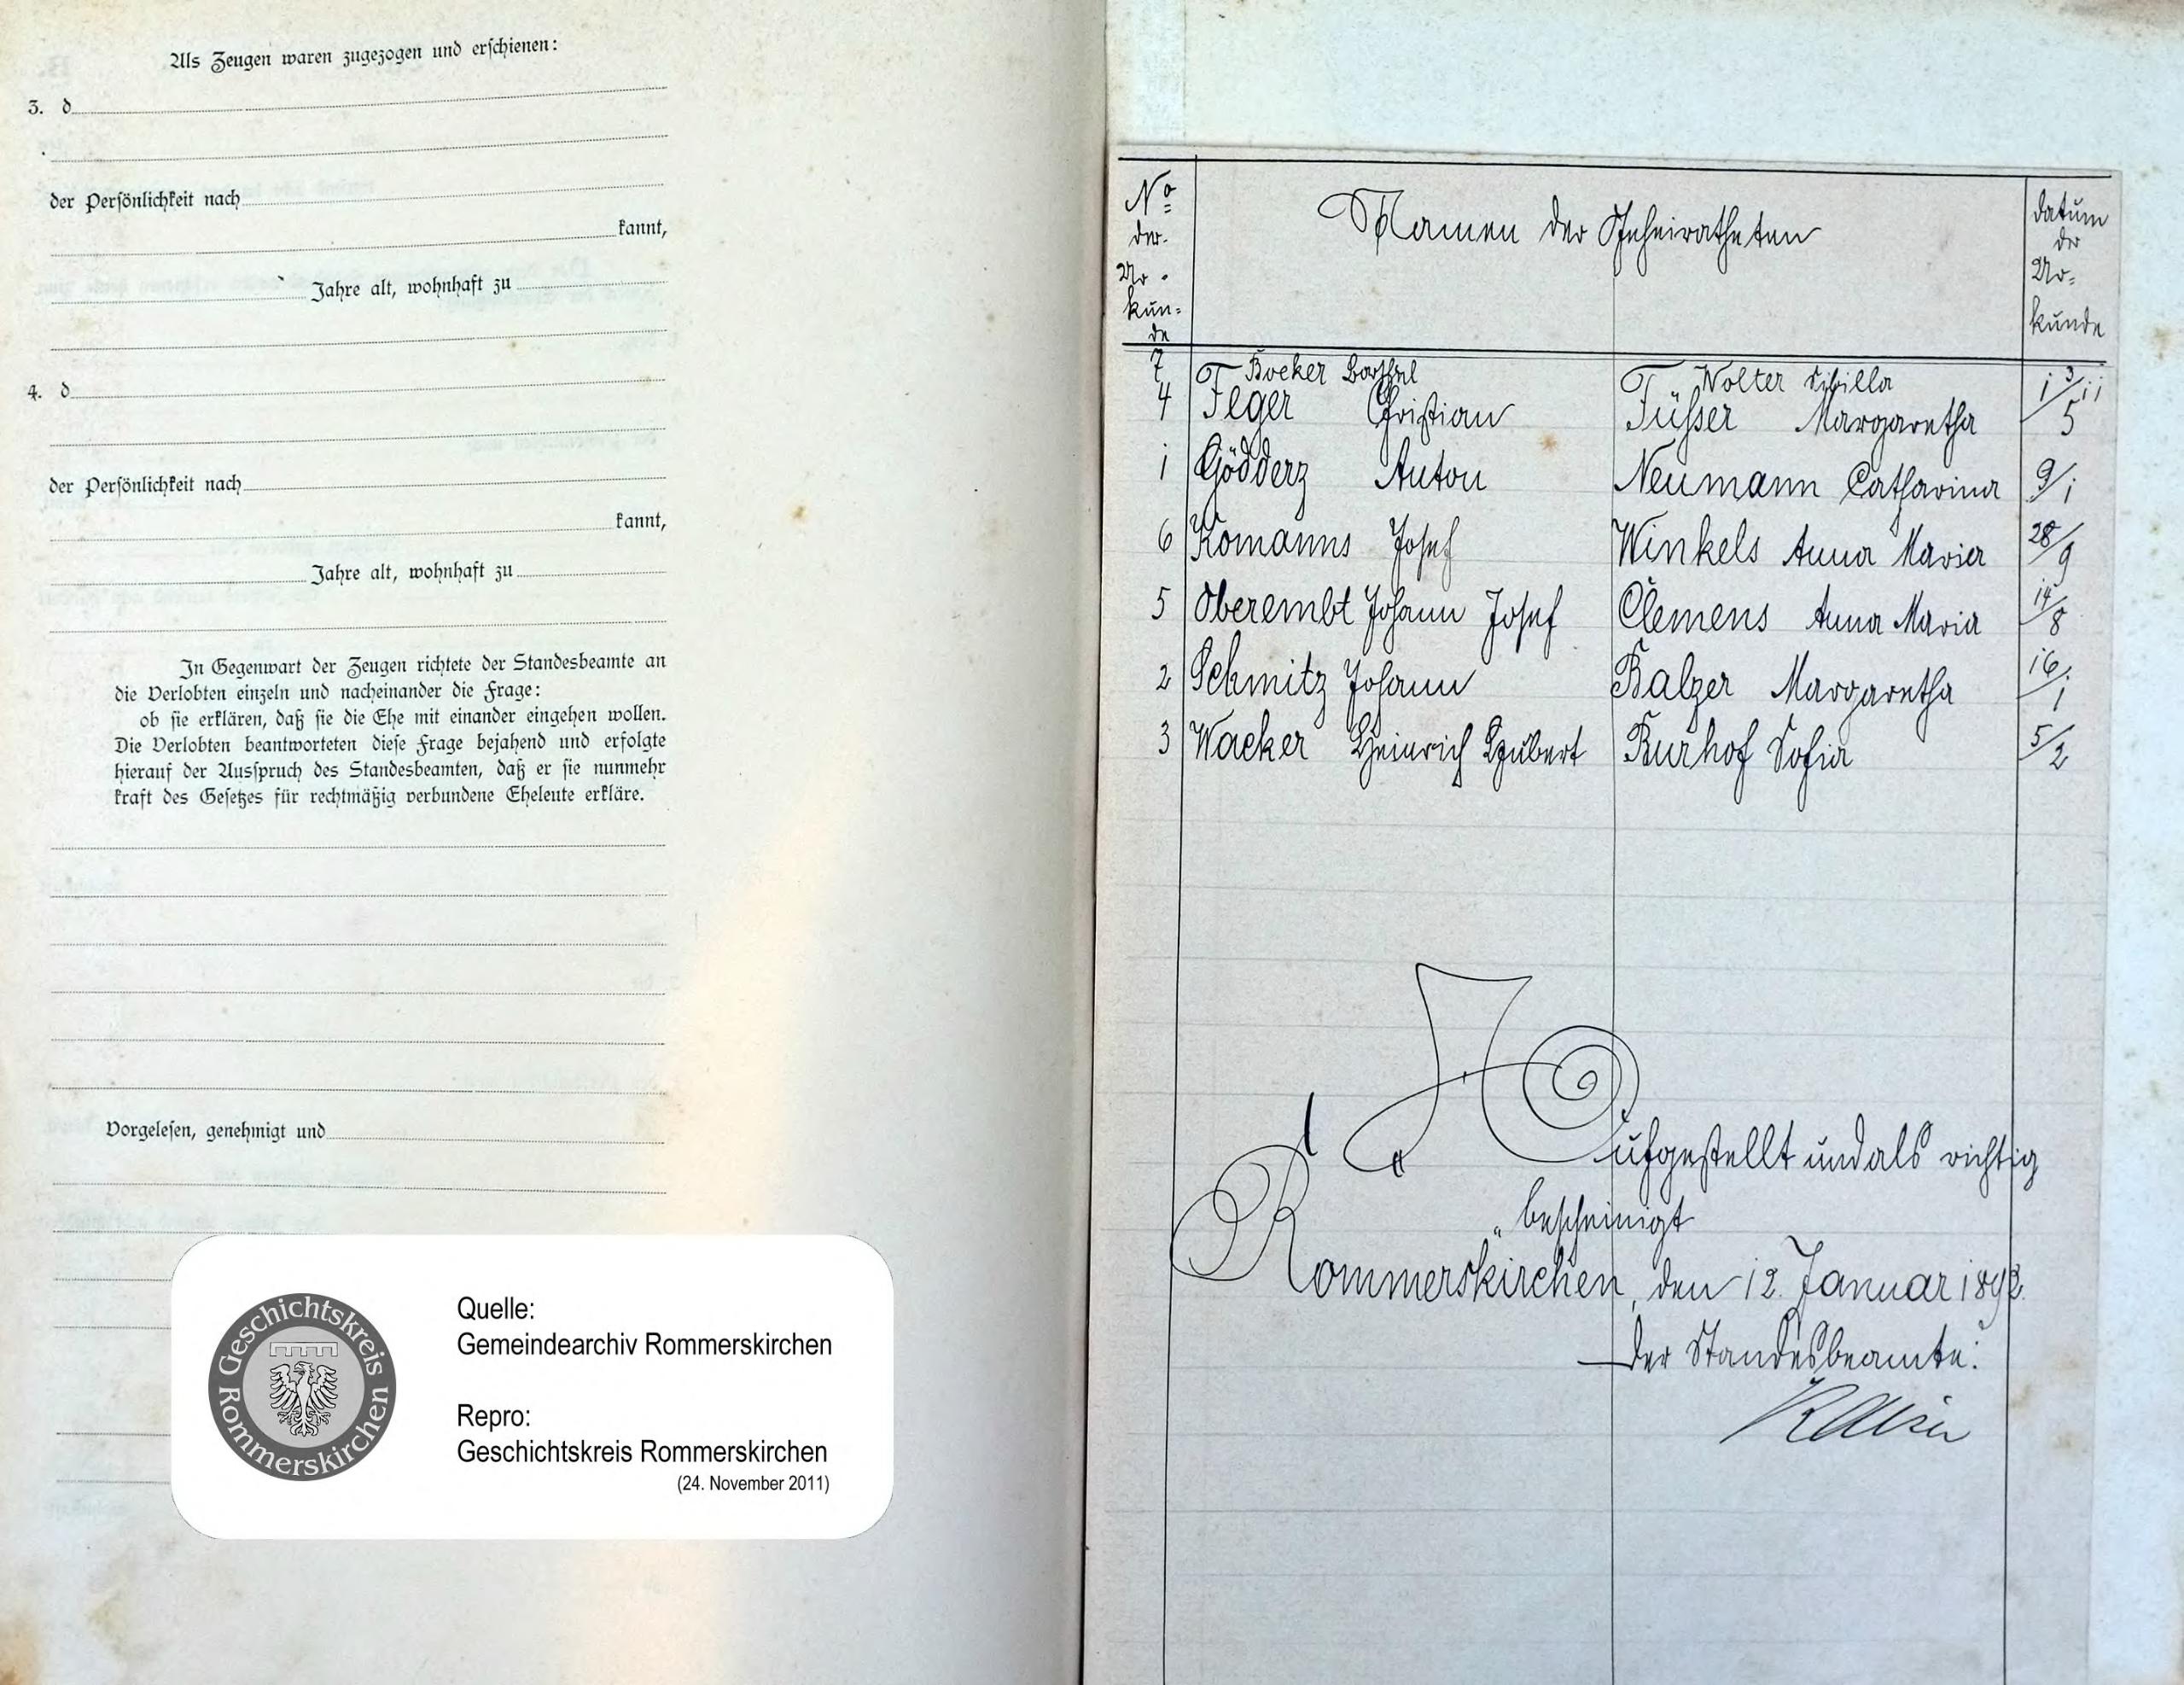 Als Zeugen waren zugezogen und erschienen:
3. d
der Persönlichkeit nach
kannt,
Jahre alt, wohnhaft zu
4. d
der Persönlichkeit nach
kannt,
Jahre alt, wohnhaft zu
In Gegenwart der Zeugen richtete der Standesbeamte an
die Verlobten einzeln und nacheinander die Frage:
ob sie erklären, daß sie die Ehe mit einander eingehen wollen.
Die Verlobten beantworteten diese Frage bejahend und erfolgte
hierauf der Ausspruch des Standesbeamten, daß er sie nunmehr
kraft des Gesetzes für rechtmäßig verbundene Eheleute erkläre.
Vorgelesen, genehmigt und
Geschichtskreis Rommerskirchen
Quelle:
Gemeindearchiv Rommerskirchen
Repro:
Geschichtskreis Rommerskirchen
(24. November 2011)
No der Ur-kun-de
Namen der Geheiratheten
Datum der Ur=kunde
7 Boeker Barthel Wolter Sibilla 13/11
4 Feger Christian Füsser Margaretha 1/5
1 Gödderz Anton Neumann Catharina 9/1
6 Komanns Josef Winkels Anna Maria 28/9
5 Oberembt Johann Josef Clemens Anna Maria 14/8
2 Schmitz Johann Balzer Margaretha 16/1
3 Wacker Heinrich Hubert Burhof Sofia 5/2
Aufgestellt und als richtig
bescheinigt
Rommerskirchen, den 12. Januar 1892.
Der Standesbeamte: